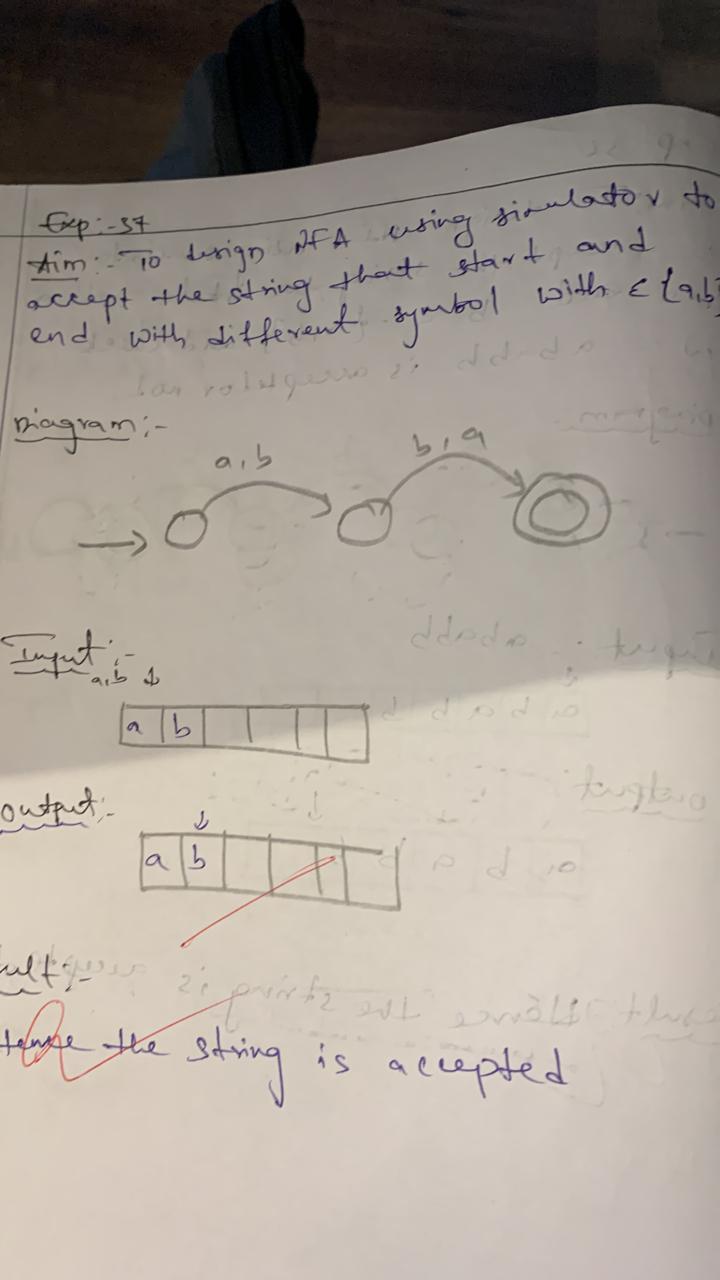 Exp:-37
Aim:- To design NFA using simulator to
accept the string that start and
end with different symbol with ε {a,b}
Diagram:-
a,b
b,a
Input:-
a,b
a b
output:-
a b
ult:-
Hence the string is accepted